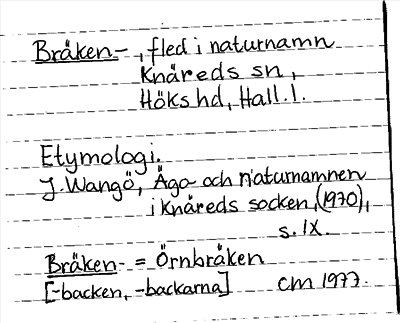 Bräken-, fled i naturnamn
Knäreds sn,
Höks hd, Hall. l.
Etymologi.
J. Wangö, Ägo och naturnamnen
i Knäreds socken, (1970),
s. IX.
Bräken- = Örnbräken
[-backen, -backarna] CM 1977.